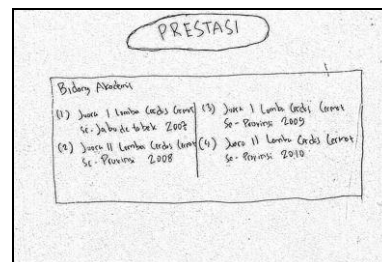 PRESTASI
Bidang Akademis
(1) Juara I Lomba Cerdas Cermat
Se-Jabodetabek 2007
(2) Juara II Lomba Cerdas Cermat
Se-Provinsi 2008
(3) Juara I Lomba Cerdas Cermat
Se-Provinsi 2009
(4) Juara II Lomba Cerdas Cermat
Se-Provinsi 2010